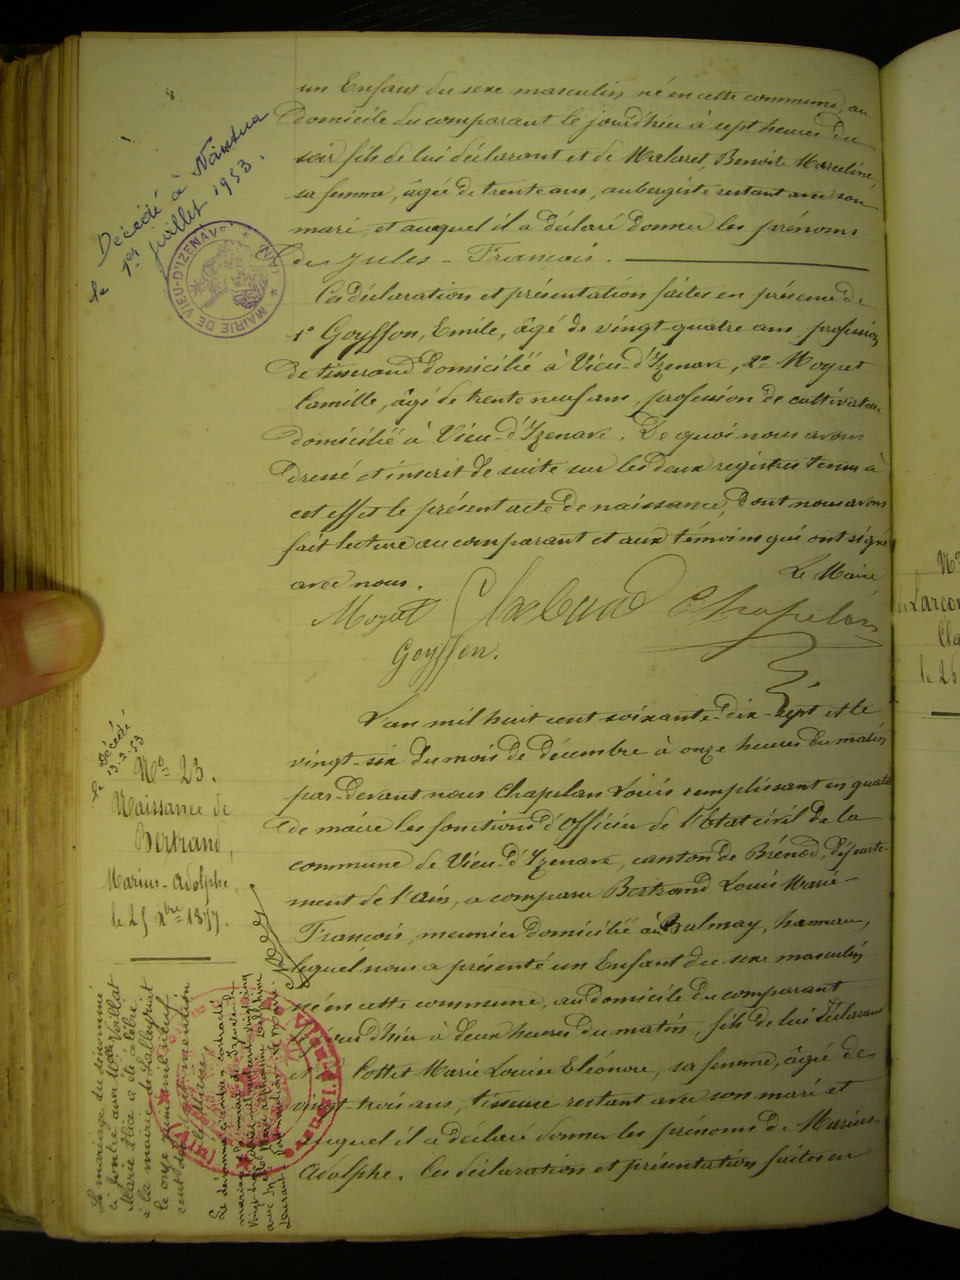 un Enfant du sexe masculin, né en cette commune, au
domicile du comparant le jourdhier à sept heures du
soir fils de lui déclarant et de Malaret, Benoite Marceline,
sa femme, âgée de trente ans, aubergiste restant avec son
mari, et auquel il a déclaré donner les prénoms
de Jules - François.
Ces déclaration et présentation faites en présence de
1° Goyffon, Emile, âgé de vingt-quatre ans, profession
de tisserand domicilié à Vieu-d'Izenave, 2° Moyret
Camille, âgé de trente neuf ans, profession de cultivateur
domicilié à Vieu-d'Izenave. De quoi nous avons
dressé et inscrit de suite sur les deux registres tenus à
cet effet le présent acte de naissance, dont nous avons
fait lecture au comparant et aux témoins qui ont signé
avec nous.
Le Maire
Chapelan
Goyffon.
Décédé à Nantua
le 1er juillet 1953.
MAIRIE DE VIEU-D'IZENAVE (AIN)
L'an mil huit cent soixante-dix-sept et le
vingt-six du mois de décembre à onze heures du matin
par-devant nous Chapelan Louis remplissant en qualité
de maire les fonctions d'Officier de l'Etat civil de la
commune de Vieu-d'Izenave, canton de Brénod, départe-
ment de l'Ain, a comparu Bertrand Louis Marie-
François, meunier domicilié à Balmay, hameau,
lequel nous a présenté un Enfant du sexe masculin
né en cette commune, au domicile du comparant
le jourdhier à deux heures du matin, fils de lui déclarant
et de Cottet Marie Louise Eléonore, sa femme, âgée de
vingt-trois ans, tisseuse restant avec son mari et
auquel il a déclaré donner les prénoms de Marius-
Adolphe. Ces déclaration et présentation faites en
Décédé
le 13-2-53
No 23.
Naissance de
Bertrand,
Marius-Adolphe,
le 25 xbre 1877.
Le mariage du dénommé
ci contre avec Melle
Marie Alice a été célébré
à la mairie de Lalleyriat
le onze juin mil neuf
cent
Le dénommé ci contre a contracté
mariage
(Ain)
No
le 26